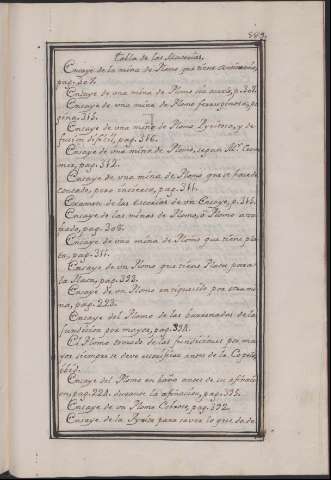 Tabla de las Materias.
Ensaye de la mina de Plomo que tiene
pag. 307.
Ensaye de una mina de Plomo sin azufre, p. 307.
Ensaye de una mina de Plomo ferruginosa, pa
gina 315.
Ensaye de una mina de Plomo Pyritosa, y de
fusion dificil, pag. 316.
Ensaye de una mina de Plomo, segun Mr.
pag. 312.
Ensaye de una mina de Plomo que se hace de
contado, pero incierto, pag. 311.
Examen de las escorias de un Ensaye, p. 316.
Ensaye de las minas de Plomo, ó Plomo azu
frado, pag. 308.
Ensaye de una mina de Plomo que tiene pla
ta, pag. 311.
Ensaye de un Plomo que tiene Plata, para
la Plata, pag. 333.
Ensaye de un Plomo enriquecido por otra mi
na, pag. 223.
Ensaye del Plomo de las barrenadas de la
fundicion por mayor, pag. 334.
El Plomo tomado de las fundiciones por ma
yor siempre se deve escorificar antes de la Copela
Ensaye del Plomo en baño antes de su afinaci
on, pag. 224. durante la afinacion, pag. 335.
Ensaye de un Plomo Cobrizo, pag. 332.
Ensaye de la Pyrite para saver lo que da de